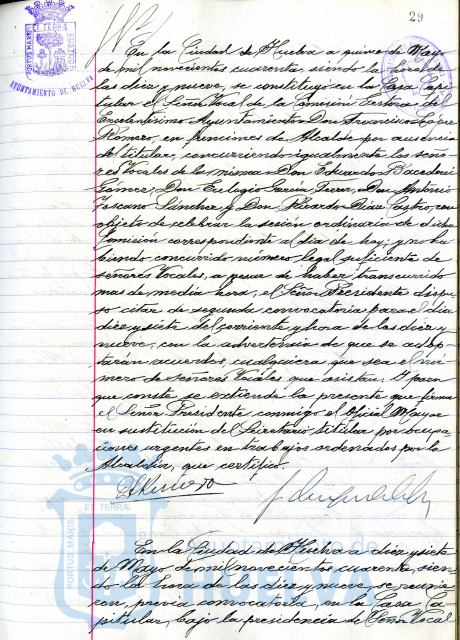 29
PORTUS MARIS ET TERRÆ CUSTODIA
AYUNTAMIENTO DE HUELVA
En la Ciudad de Huelva a quince de Mayo
de mil novecientos cuarenta, siendo la hora de
las diez y nueve, se constituyó en la Casa Capi-
tular el Señor Vocal de la Comisión Gestora del
Excelentísimo Ayuntamiento Don Francisco López
Romero, en funciones de Alcalde por ausencia
del titular, concurriendo igualmente los seño-
res Vocales de la misma Don Eduardo
Gómez, Don Eulogio García, Don Antonio
Toscano Sánchez y Don Ricardo Díaz Castro, con
objeto de celebrar la sesión ordinaria de dicha
Comisión correspondiente al día de hoy; y no ha-
biendo concurrido número legal suficiente de
señores Vocales, a pesar de haber transcurrido
mas de media hora, el Señor Presidente dispu-
so citar de segunda convocatoria para el día
diez y siete del corriente y hora de las diez y
nueve, con la advertencia de que se adop-
tarán acuerdos cualquiera que sea el nú-
mero de señores Vocales que asistan. Y para
que conste se extiende la presente que firma
el Señor Presidente conmigo el Oficial Mayor
en sustitución del Secretario titular por ocupa-
ciones urgentes en trabajos ordenados por la
Alcaldía, que certifico.
En la Ciudad de Huelva a diez y siete
de Mayo de mil novecientos cuarenta, sien-
do la hora de las diez y nueve se reunie-
ron, previa convocatoria, en la Casa Ca-
pitular, bajo la presidencia del Señor Vocal
PORTUS MARIS ET TERRÆ
Ayuntamiento de
HUELVA